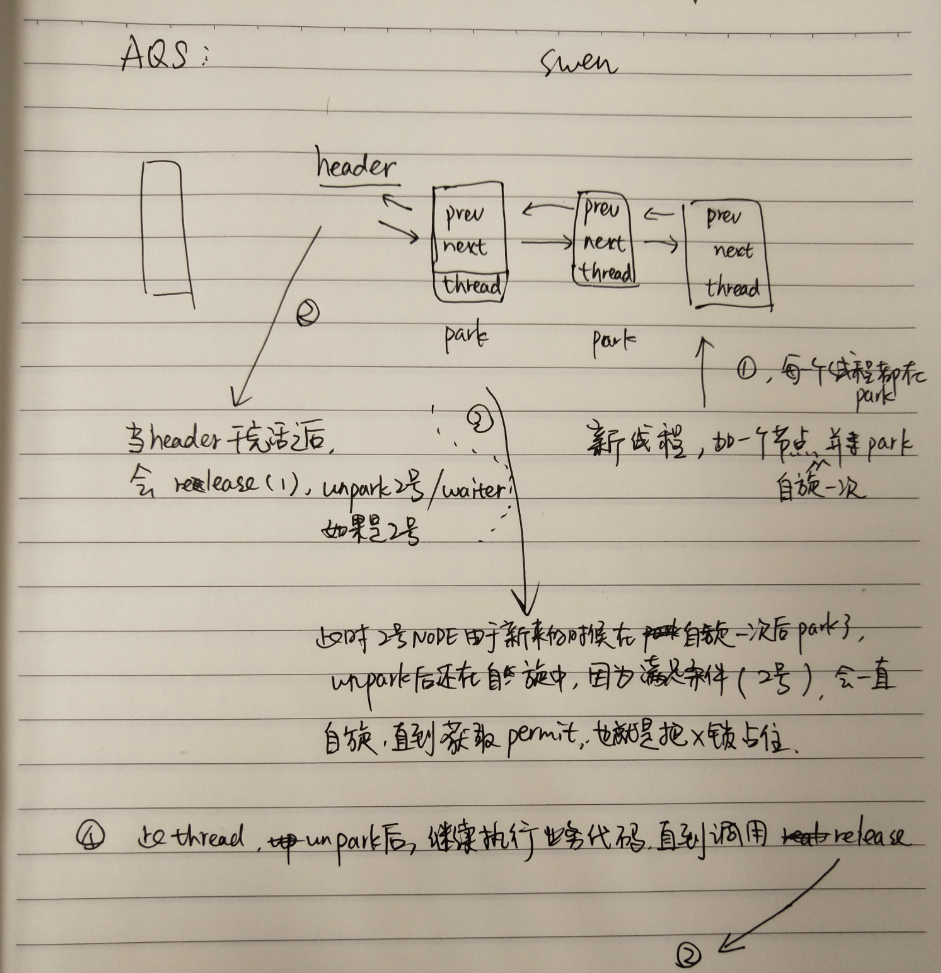 AQS:
swen
header
prev
next
thread
park
prev
next
thread
park
prev
next
thread
①, 每个线程都在
park
新线程, 加一个节点, 并 park
自旋一次
②
当header干完活之后,
会 release(1), unpark 2号/waiter
如果是2号
③
此时 2号NODE 由于新来的时候在 自旋一次后park了,
unpark后还在自旋中, 因为满足条件(2号), 会一直
自旋, 直到获取 permit, 也就是把X锁占住.
④ 这 thread, unpark后, 继续执行业务代码, 直到调用 release
②